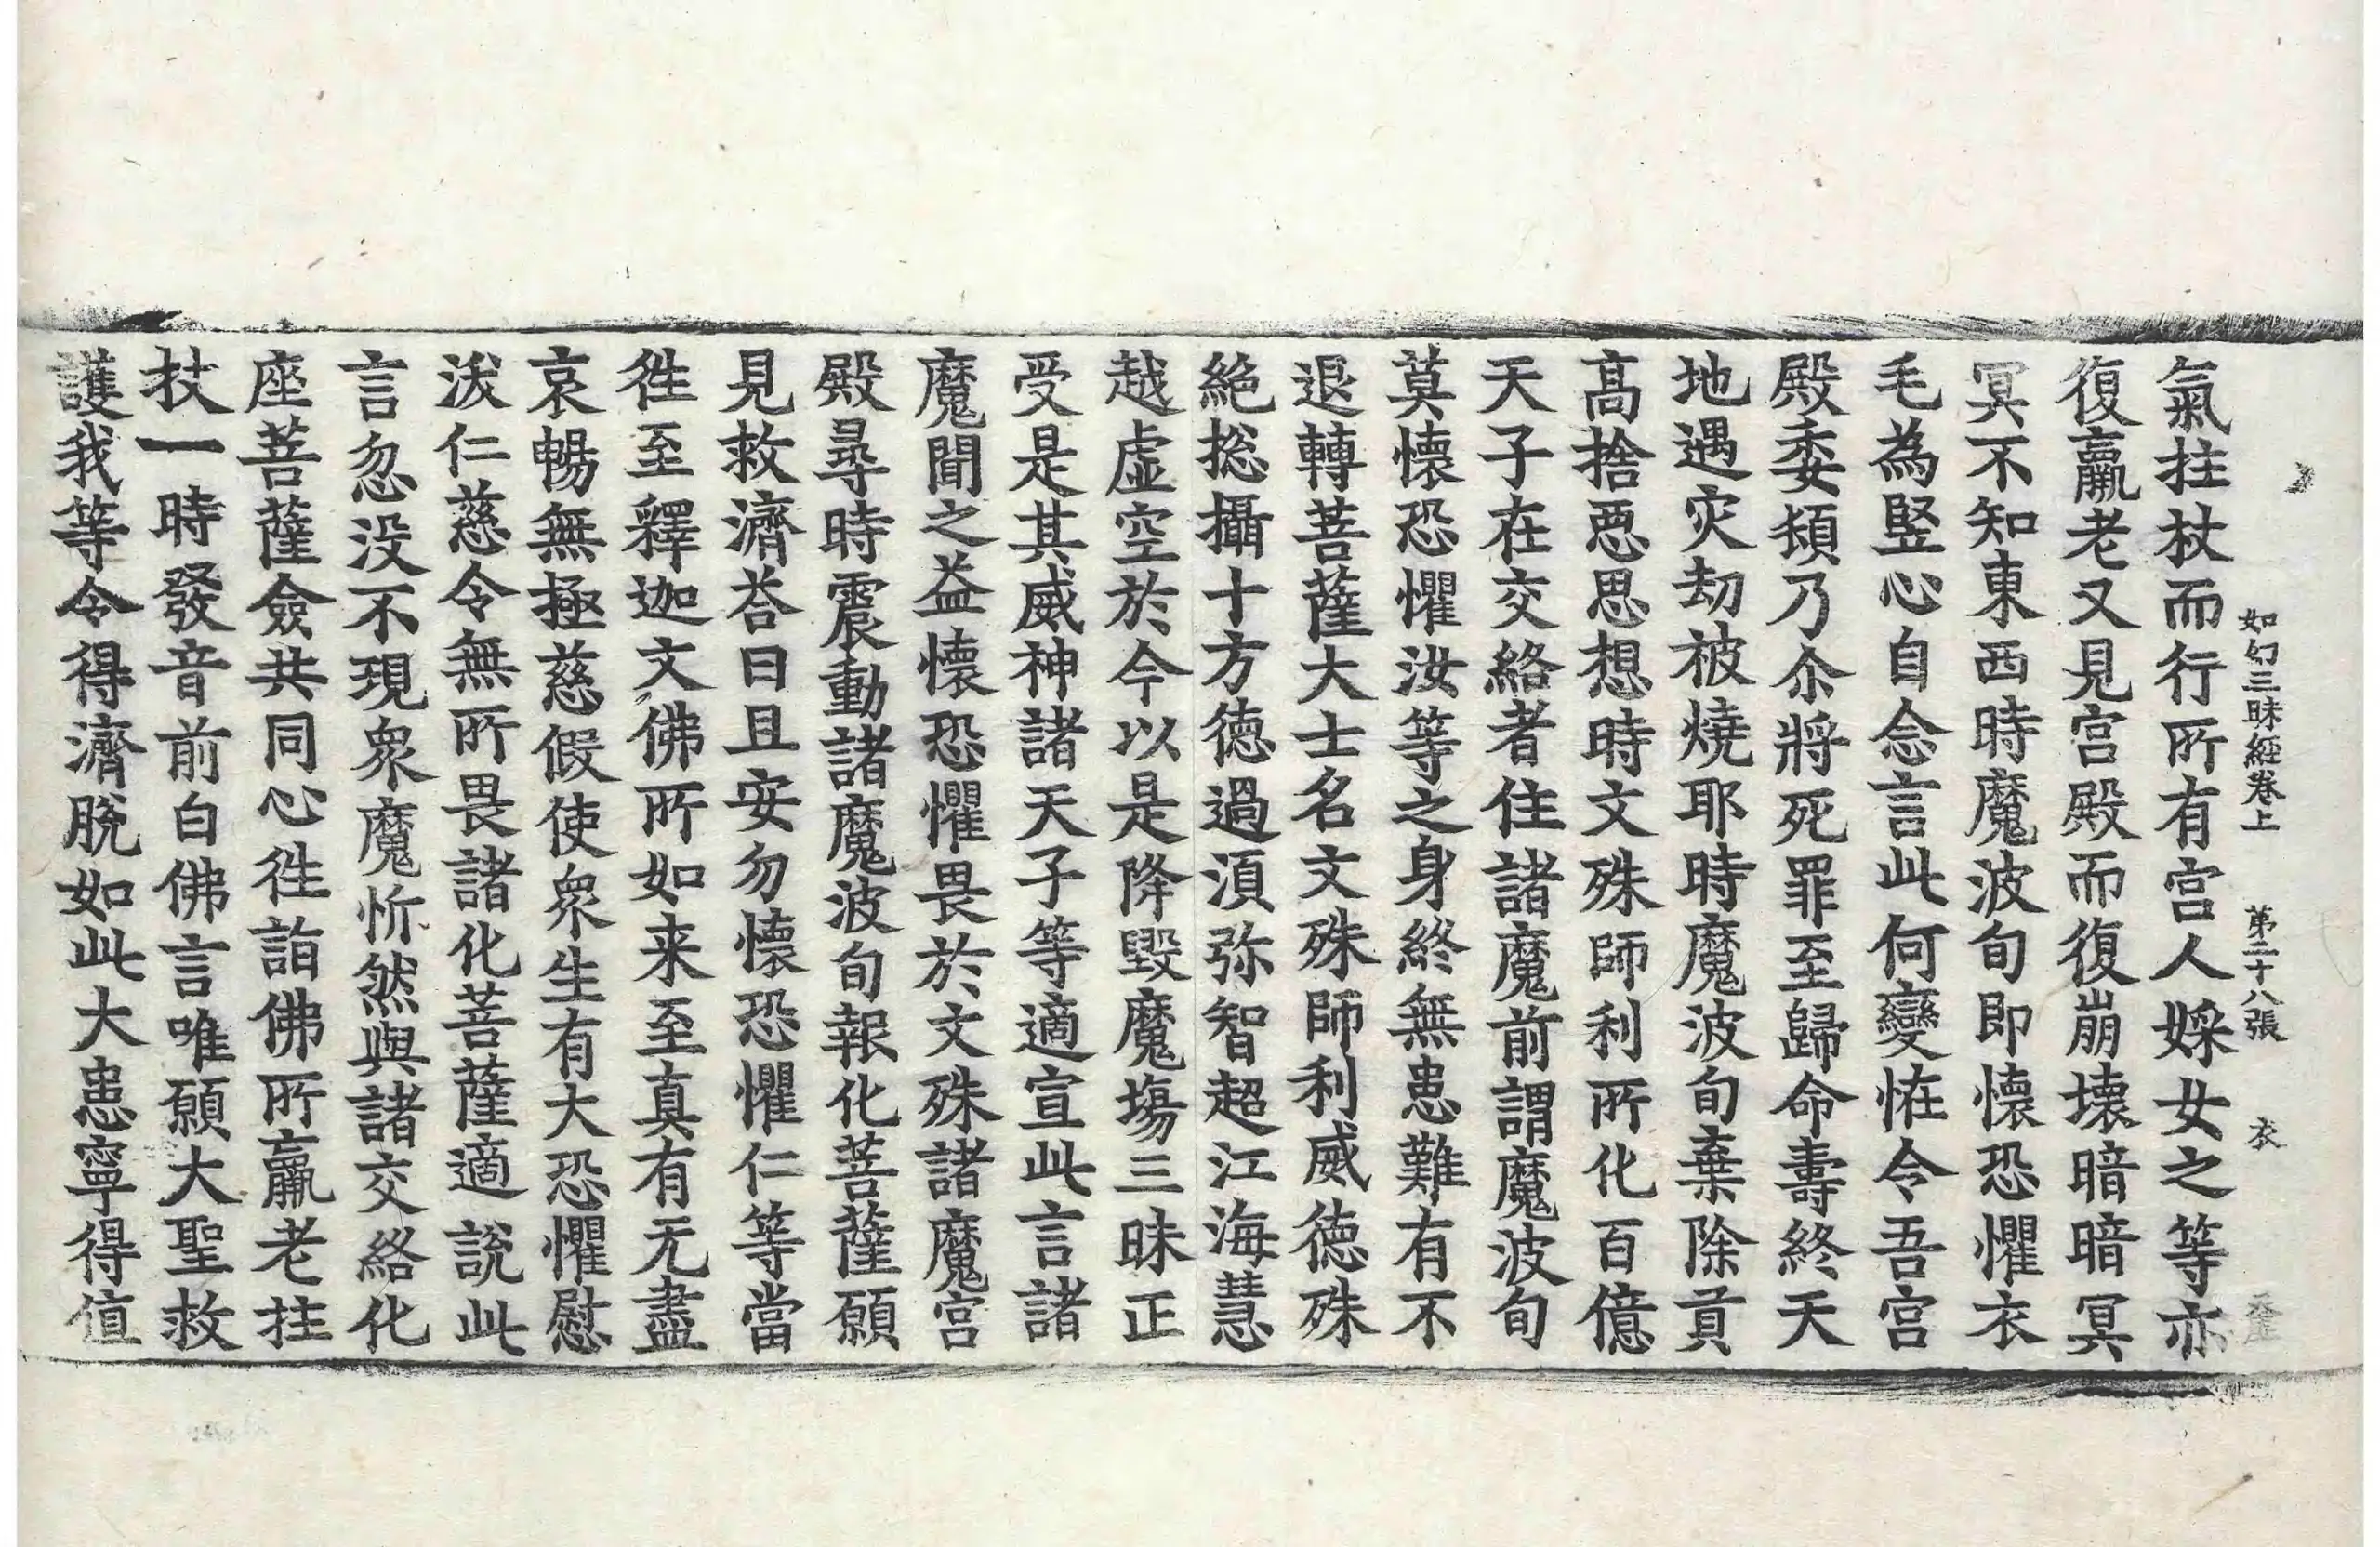 如幻三昧經卷上　第二十八張　衣
氣拄杖而行所有宮人婇女之等亦
復羸老又見宮殿而復崩壞暗暗冥
冥不知東西時魔波旬即懷恐懼衣
毛為竪心自念言此何變恠令吾宮
殿委頽乃尒將死罪至歸命壽終天
地遇灾劫被燒耶時魔波旬棄除貢
髙捨惡思想時文殊師利所化百億
天子在交絡者住諸魔前謂魔波旬
莫懷恐懼汝等之身終無患難有不
退轉菩薩大士名文殊師利威德殊
絶捴攝十方德過湏弥智超江海慧
越虛空於今以是降毀魔塲三昧正
受是其威神諸天子等適宣此言諸
魔聞之益懷恐懼畏於文殊諸魔宮
殿尋時震動諸魔波旬報化菩薩願
見救濟荅曰且安勿懷恐懼仁等當
徃至釋迦文佛所如来至真有无盡
哀暢無極慈假使衆生有大恐懼慰
沷仁慈令無所畏諸化菩薩適說此
言忽没不現衆魔忻然與諸交絡化
座菩薩僉共同心徃詣佛所羸老拄
杖一時發音前白佛言唯願大聖救
護我等令得濟脫如此大患寧得值